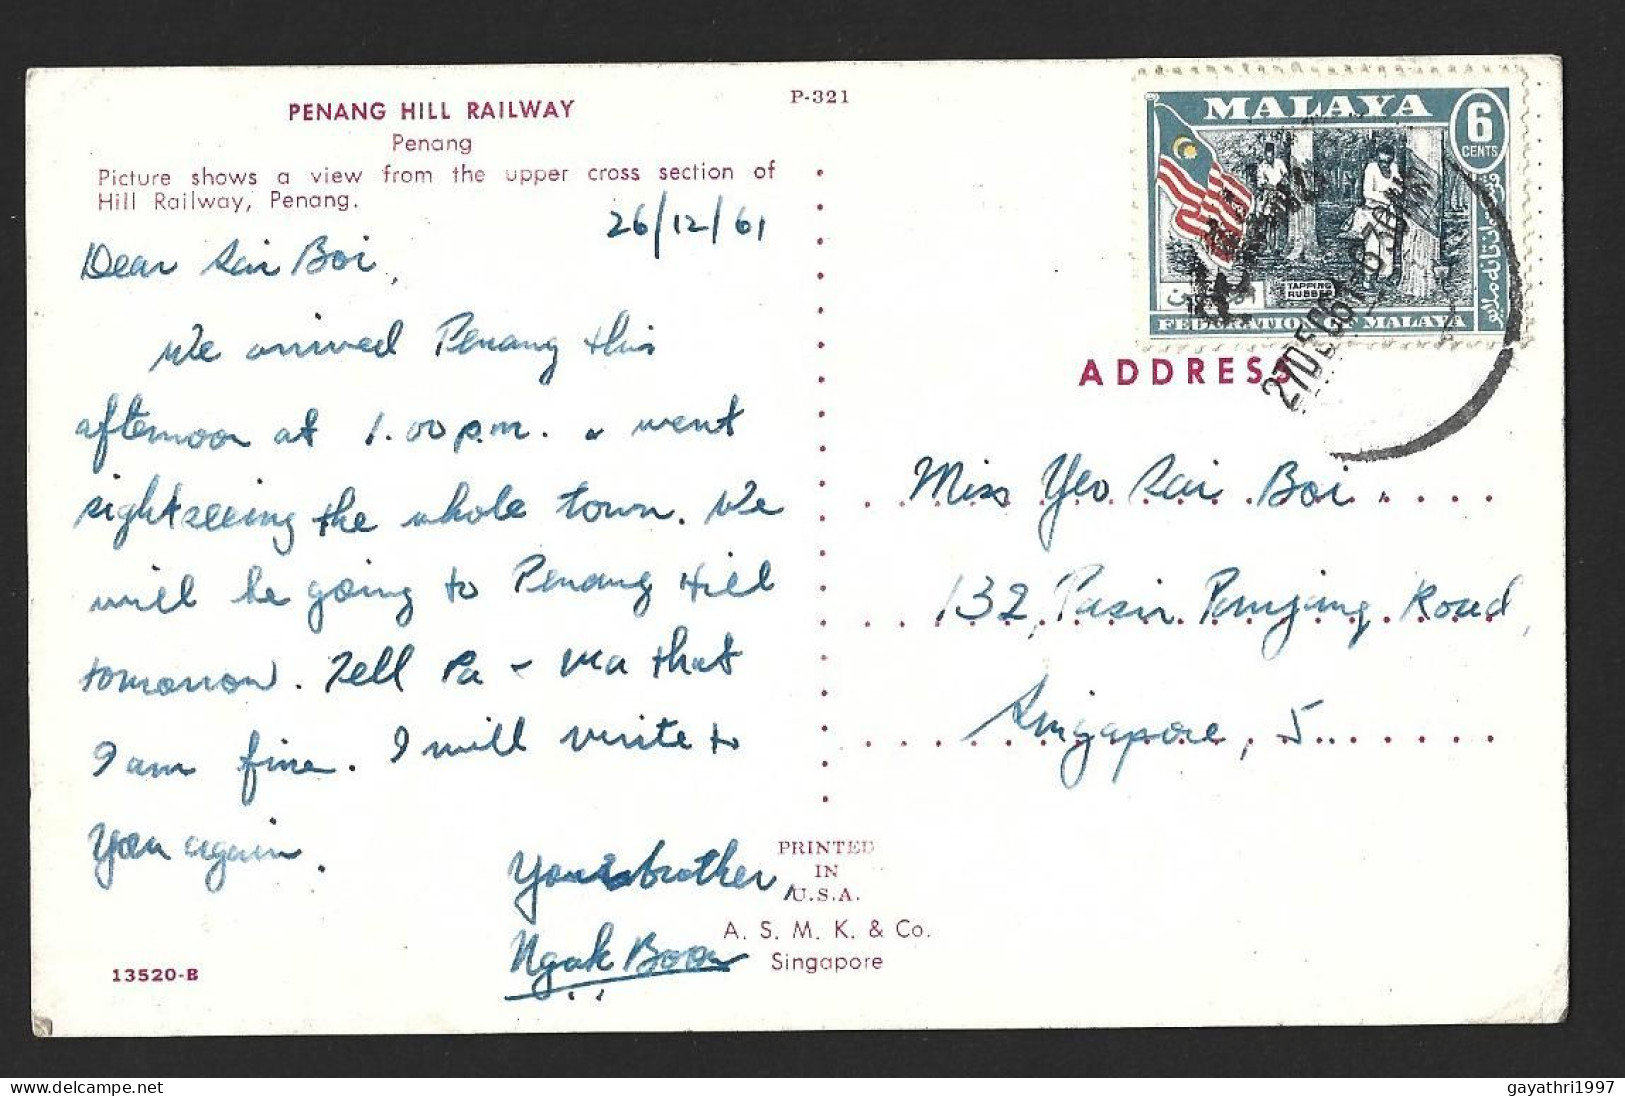 PENANG HILL RAILWAY
Penang
Picture shows a view from the upper cross section of
Hill Railway, Penang.
26/12/61
Dear Sai Boi,
We arrived Penang this
afternoon at 1.00 p.m. & went
sightseeing the whole town. We
will be going to Penang Hill
tomorrow. Tell Pa & Ma that
I am fine. I will write to
you again.
Your brother,
Ngak Boon
13520-B
P-321
MALAYA
6
CENTS
TAPPING
RUBBER
FEDERATION OF MALAYA
ADDRESS
Miss Yeo Sai Boi
132, Pasir Panjang Road,
Singapore, 5.
PRINTED
IN
U.S.A.
A. S. M. K. & Co.
Singapore
delcampe.net
gayathri1997